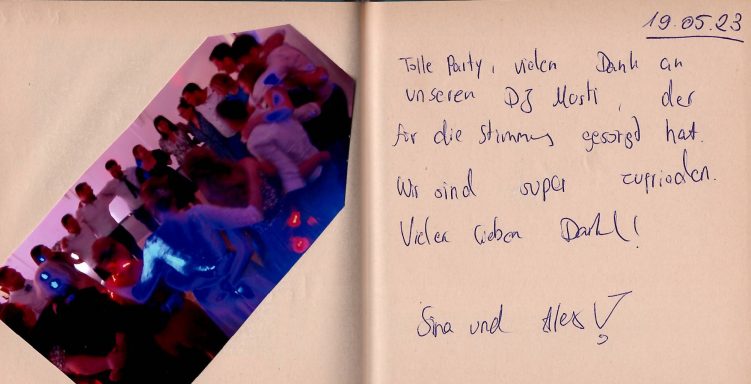 19.05.23
Tolle Party, vielen Dank an
unseren DJ Mosti, der
für die Stimmung gesorgt hat.
Wir sind super zufrieden.
Vielen lieben Dank!
Sina und Alex